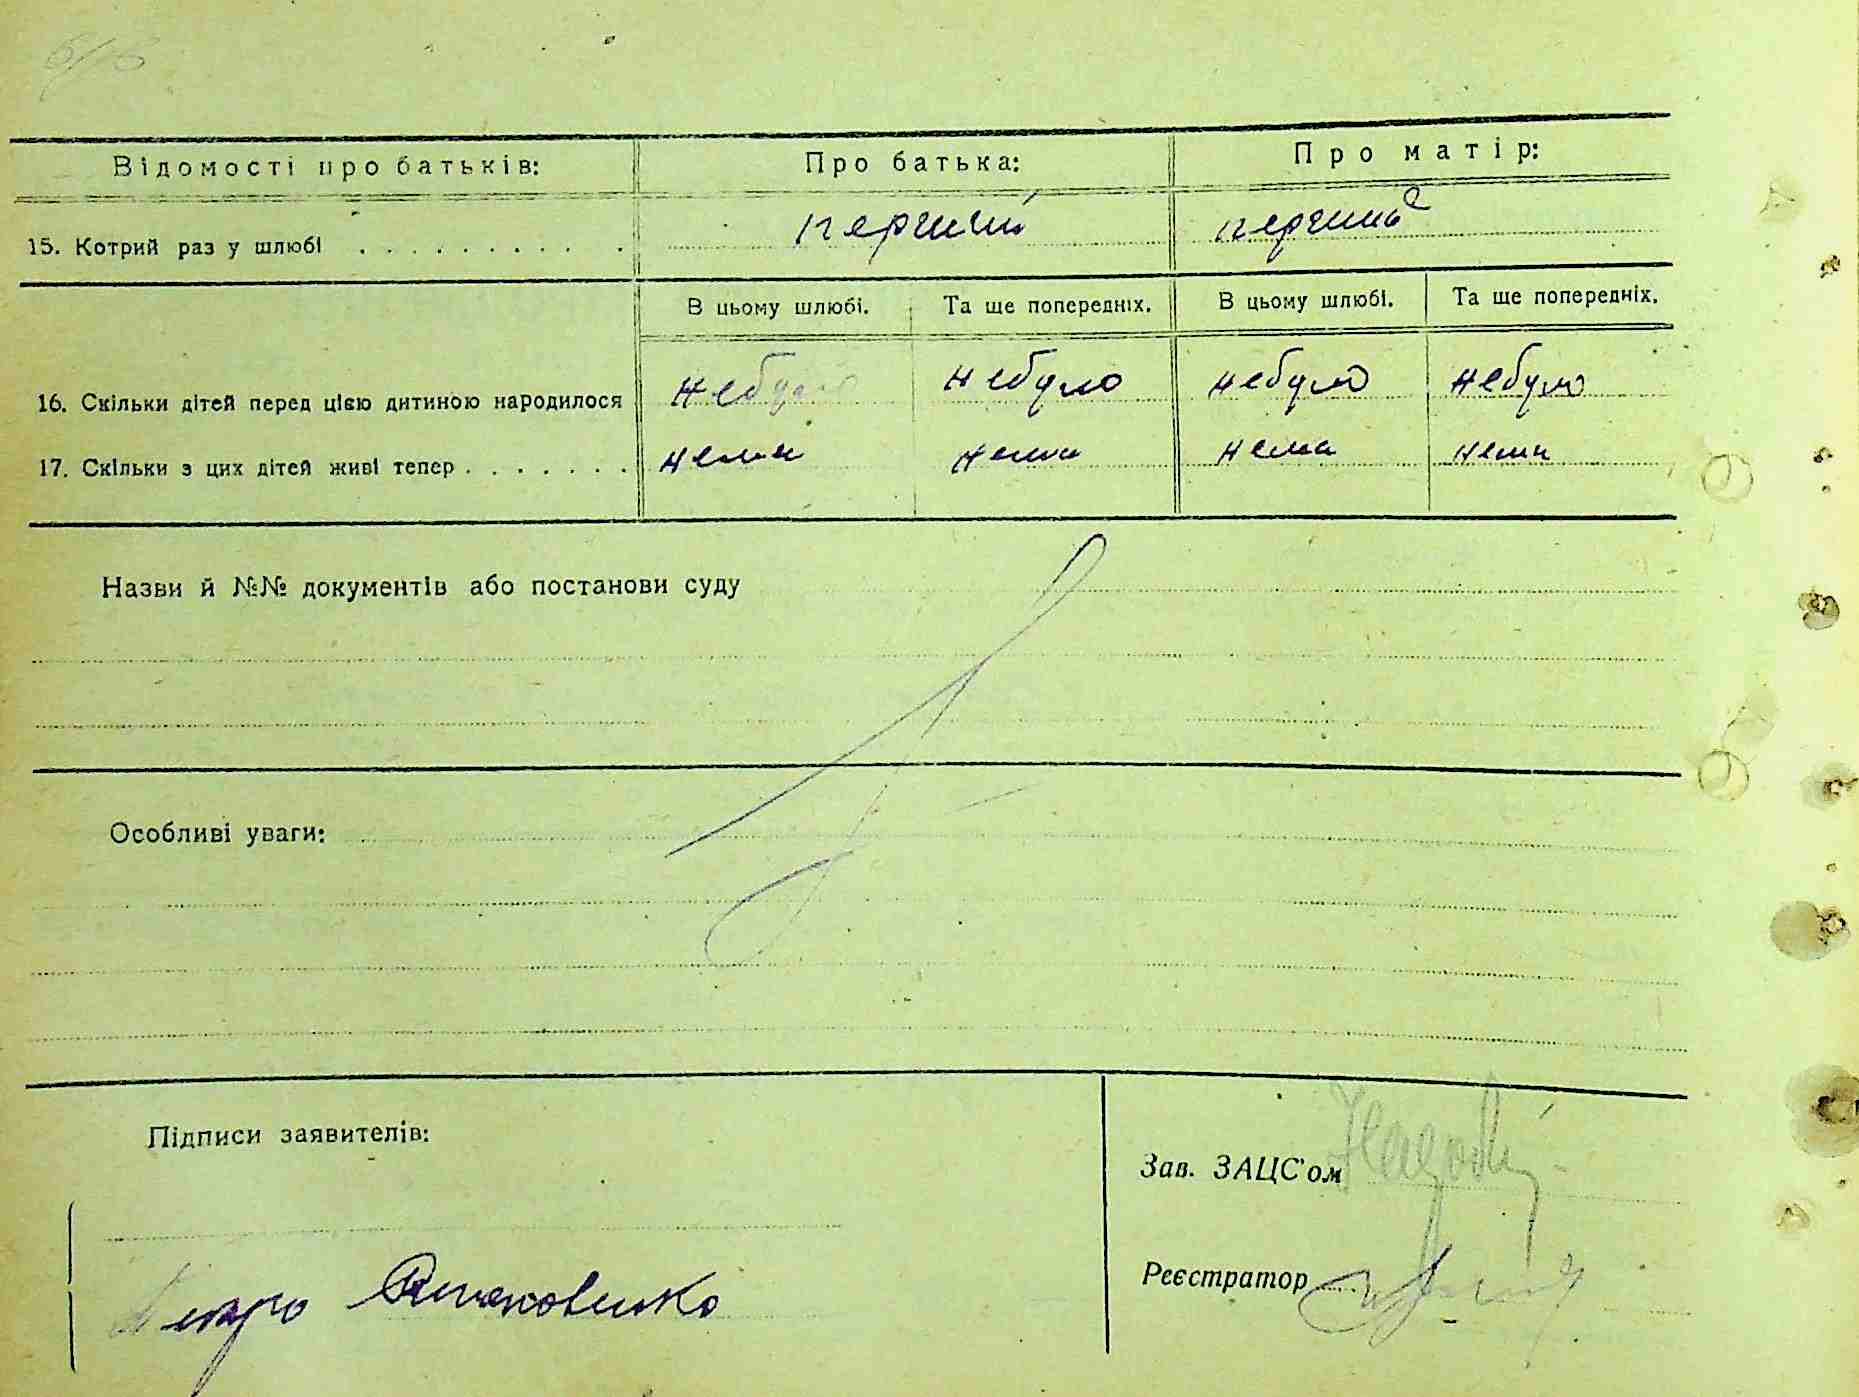 Відомості про батьків:
Про батька:
Про матір:
15. Котрий раз у шлюбі . . . . . . . . . .
перший
перший
В цьому шлюбі.
Та ще попередніх.
В цьому шлюбі.
Та ще попередніх.
16. Скільки дітей перед цією дитиною народилося
небуло
небуло
небуло
небуло
17. Скільки з цих дітей живі тепер . . . . . . .
нема
нема
нема
нема
Назви й №№ документів або постанови суду
Особливі уваги:
Підписи заявителів:
Зав. ЗАЦС'ом
Реєстратор
Петро